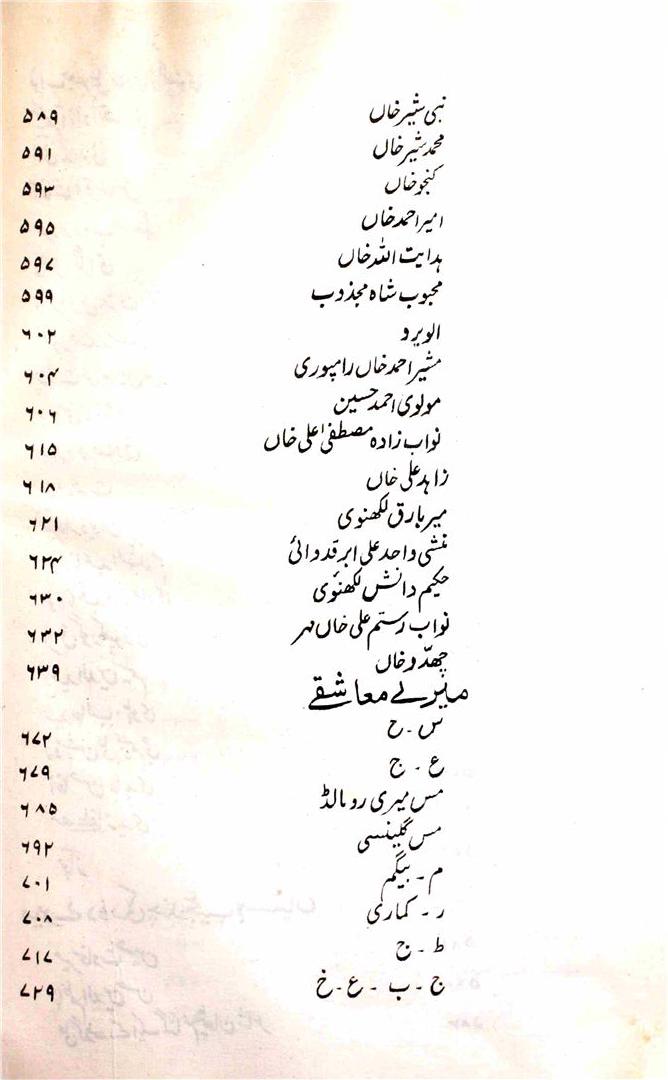 نبی شیر خاں ۵۸۹
محمد شیر خاں ۵۹۱
کنجو خاں ۵۹۳
امیر احمد خاں ۵۹۵
ہدایت اللہ خاں ۵۹۷
محبوب شاہ مجذوب ۵۹۹
الویرد ۶۰۲
مشیر احمد خاں رامپوری ۶۰۴
مولوی احمد حسین ۶۰۶
نواب زادہ مصطفیٰ علی خاں ۶۱۵
زاہد علی خاں ۶۱۸
میر بارق لکھنوی ۶۲۱
منشی واحد علی ابر قدوائی ۶۲۴
حکیم دانش لکھنوی ۶۳۰
نواب رستم علی خاں مہر ۶۳۲
چھدّو خاں ۶۳۹
میرے معاشقے
س ۔ ح ۶۷۲
ع ۔ ج ۶۷۹
مس میری رومالڈ ۶۸۵
مس گلینسی ۶۹۲
م ۔ بیگم ۷۰۱
ر ۔ کماری ۷۰۸
ط ۔ ج ۷۱۷
ج ۔ ب ۔ ع ۔ خ ۷۲۹